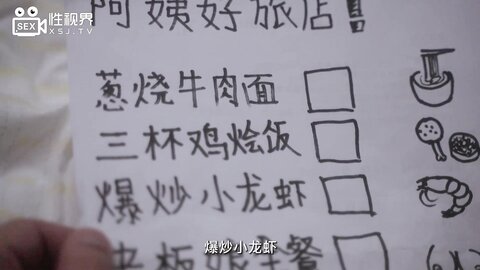 SEX 性视界
XSJ.TV
阿姨好旅店
葱烧牛肉面
三杯鸡烩饭
爆炒小龙虾
老板娘主餐
爆炒小龙虾